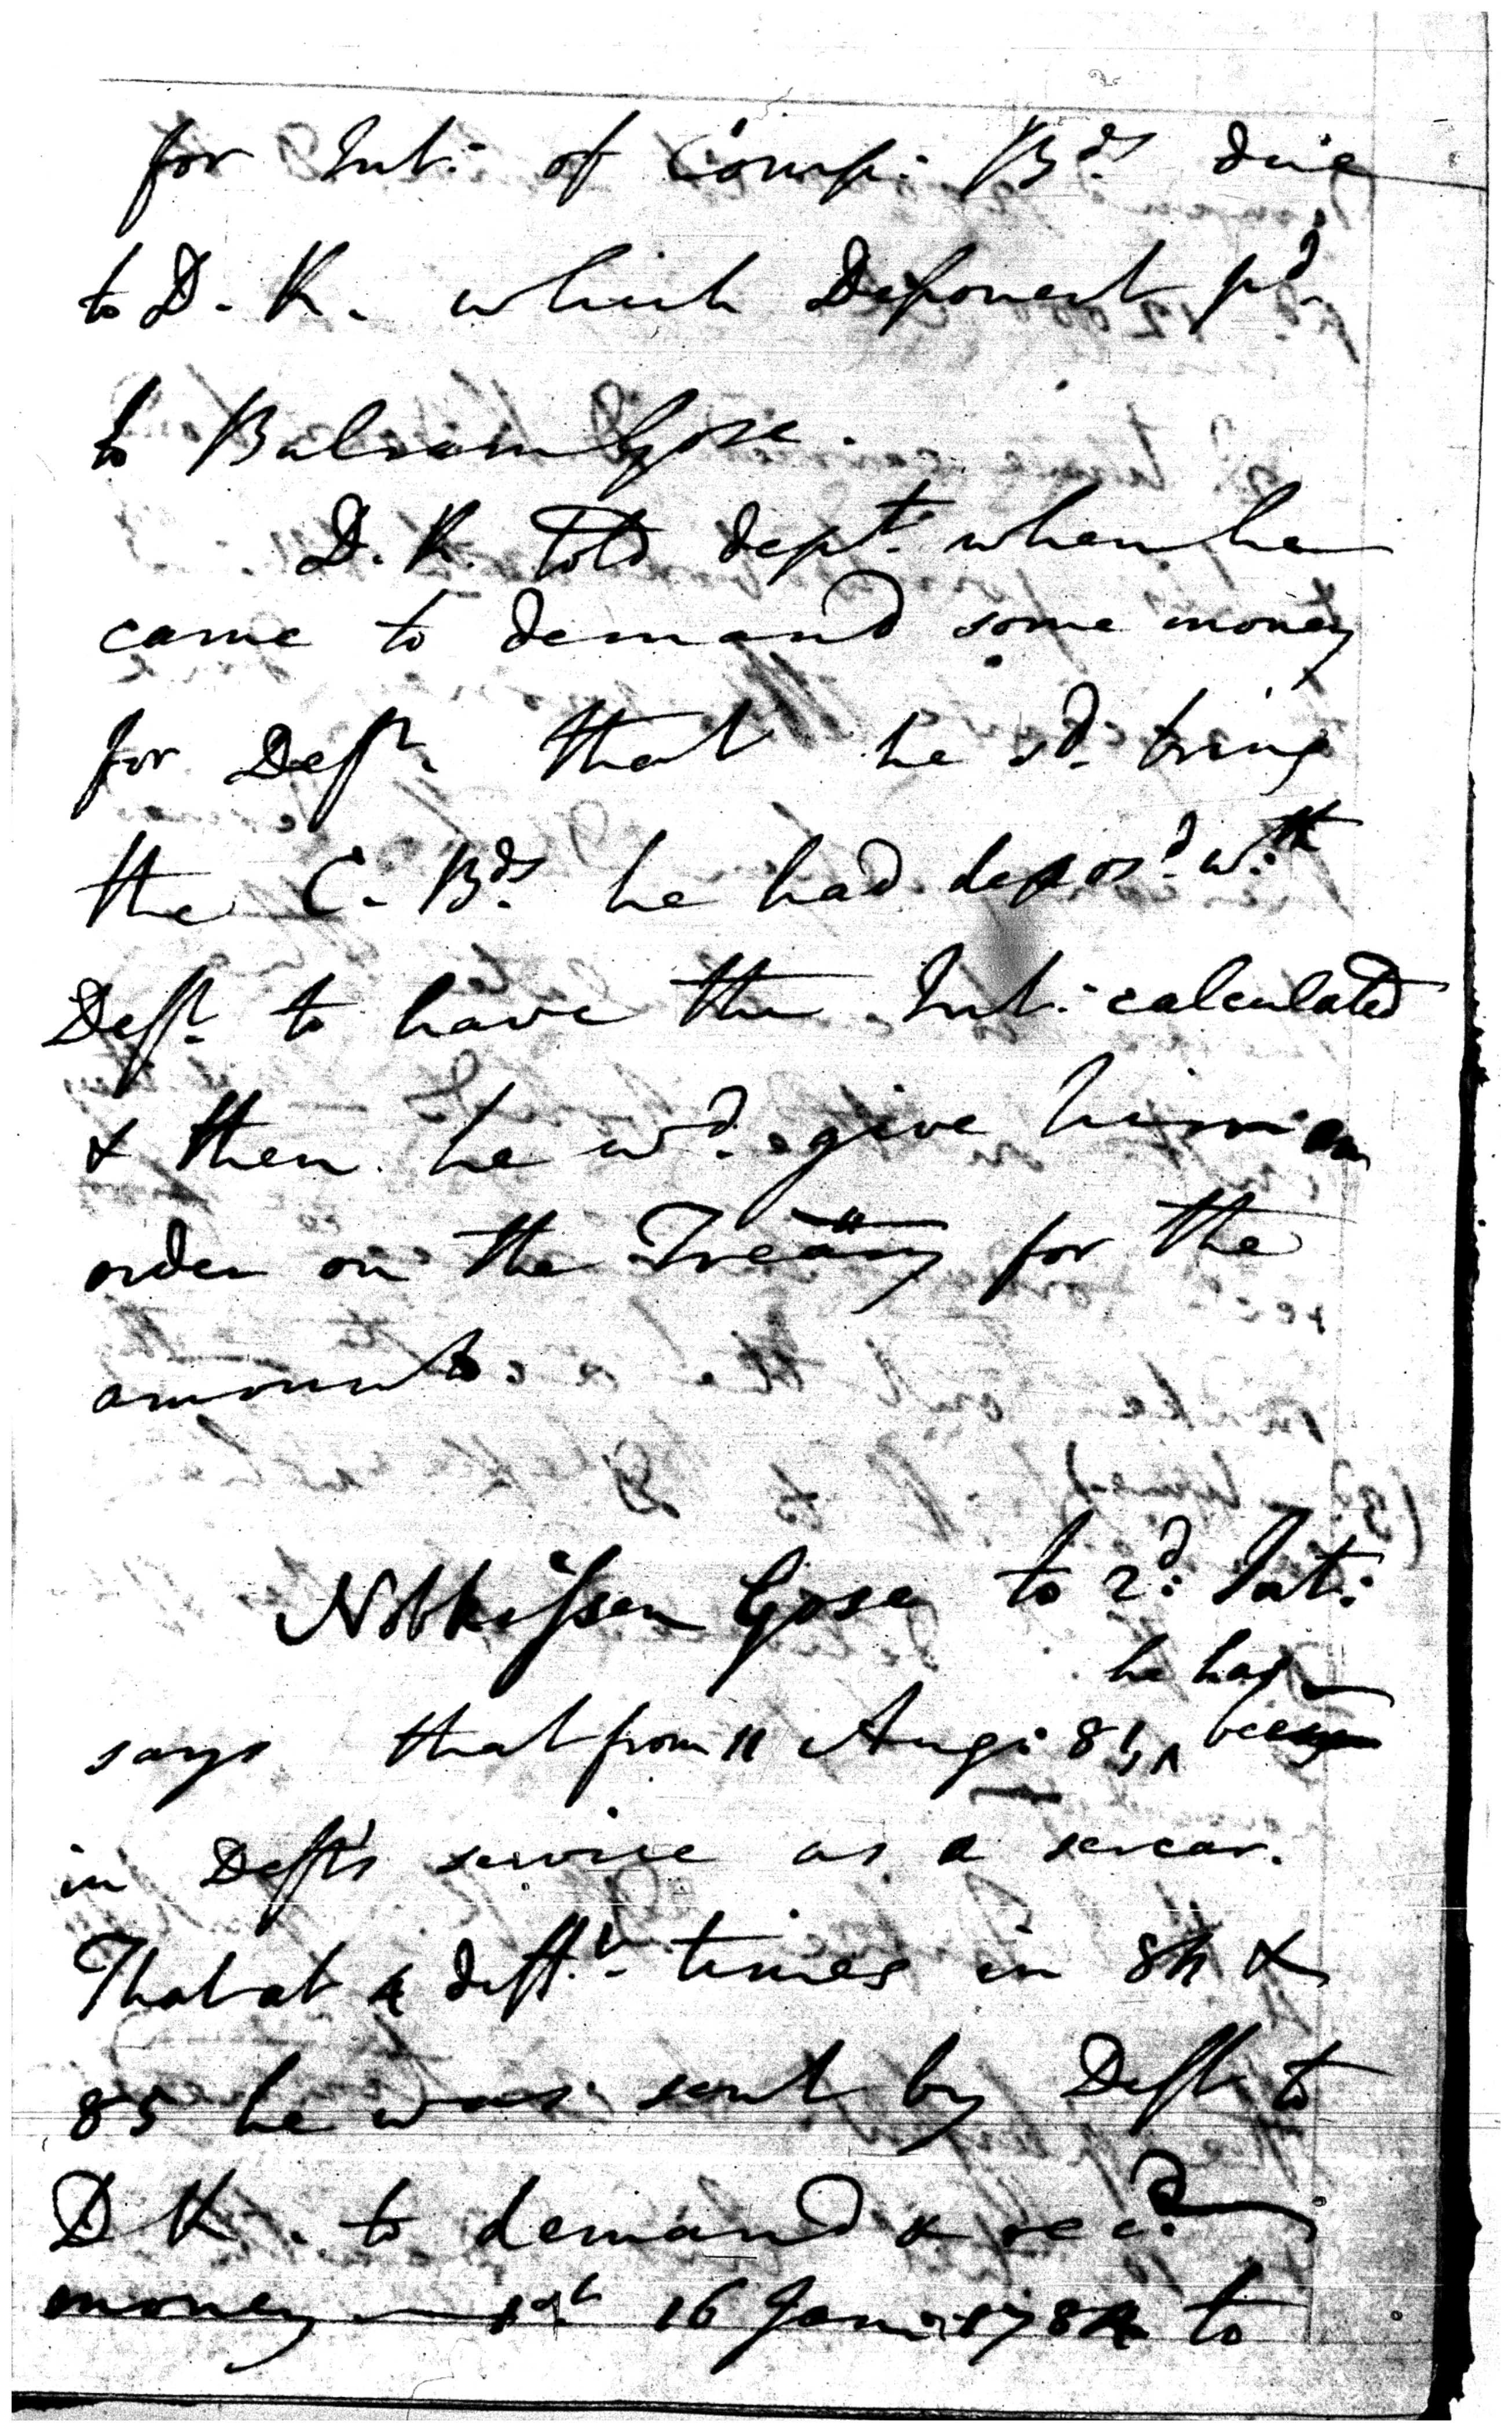 for Int: of Comp: Bds due
to D. K. which Deponent pd
to Balram Gose.
D. K. told dept. when he
came to demand some money
for Deft. that he sd. bring
the C. Bds. he had depos'd. wth
Deft. to have the Int: calculated
& then he wd. give him an
order on the Treasy for the
amount.
Nobkissen Gose to 2d: Int:
he has
says that from 11 Aug: 81, ^ been
in Deft's service as a sercar.
That at 4 difft. times in 84 &
85 he was sent by Deft. to
D K. to demand & recd.
money 1st 16 Jan: 1784 to